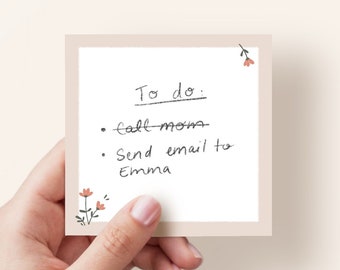 To do:
• Call mom
• Send email to
Emma